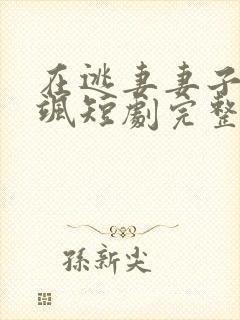 在逃妻妻子
飒短劇完整
孫新尖